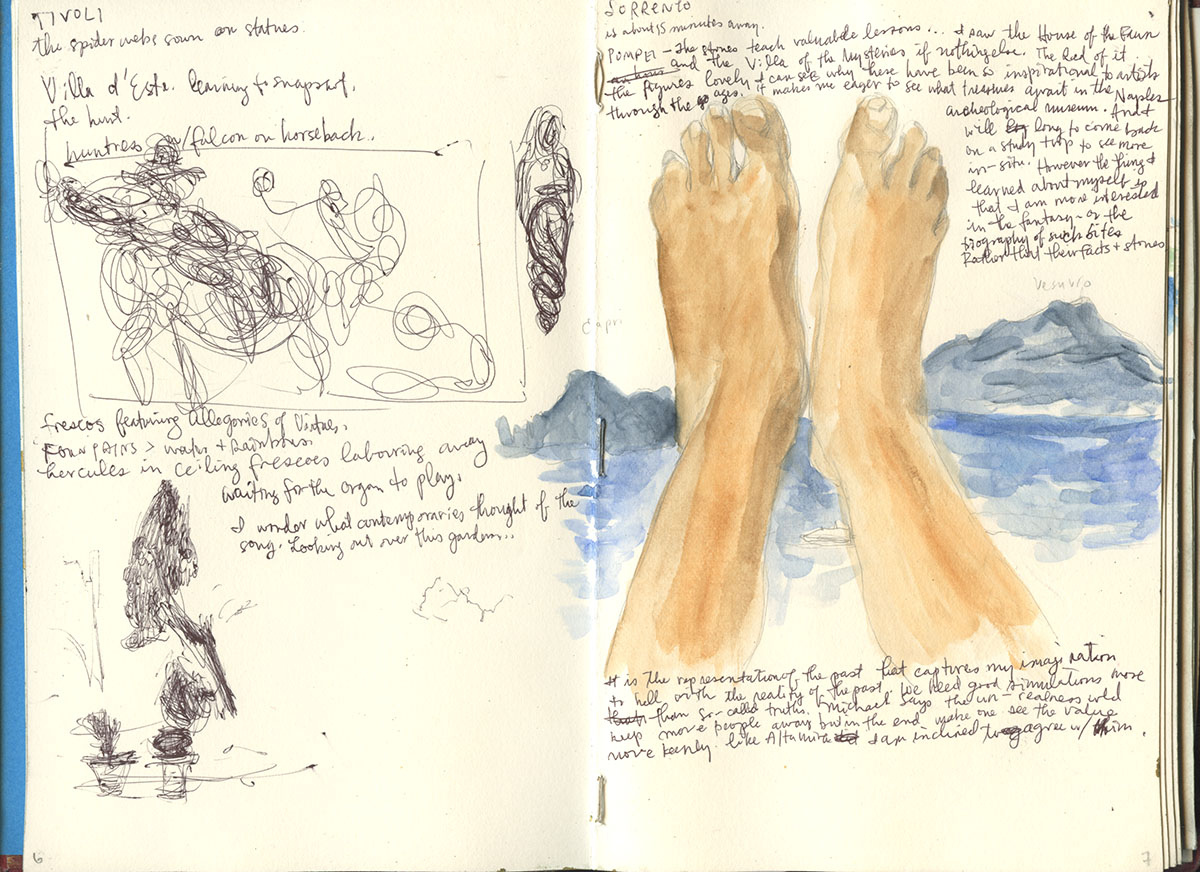 TIVOLI
the spider webs sown on statues.
Villa d'Este. learning to snapshot.
the hunt.
huntress w/falcon on horseback.
frescos featuring Allegories of Virtue.
FOUNTAINS > water + rainbows.
hercules in ceiling frescoes labouring away
waiting for the organ to play.
I wonder what contemporaries thought of the
song. Looking out over this garden...
6
SORRENTO
is about 15 minutes away.
POMPEI - The stones teach valuable lessons... I saw the House of the Faun
and the Villa of the Mysteries if nothing else. The Red of it
the figures lovely I can see why these have been so inspirational to artists
through the ages. it makes me eager to see what treasures await in the Naples
archeological museum. And I
will long to come back
on a study trip to see more
in-situ. However the thing I
learned about myself is
that I am more interested
in the fantasy - or the
biography of such bites
Rather than their facts + stones
Vesuvio
Capri
It is the representation of the past that captures my imagination
to hell with the reality of the past. We need good simulations more
than so-called truths. Michael says the un-realness wld
keep more people away but in the end make one see the value
more keenly like Altamira I am inclined to agree w/ him.
7